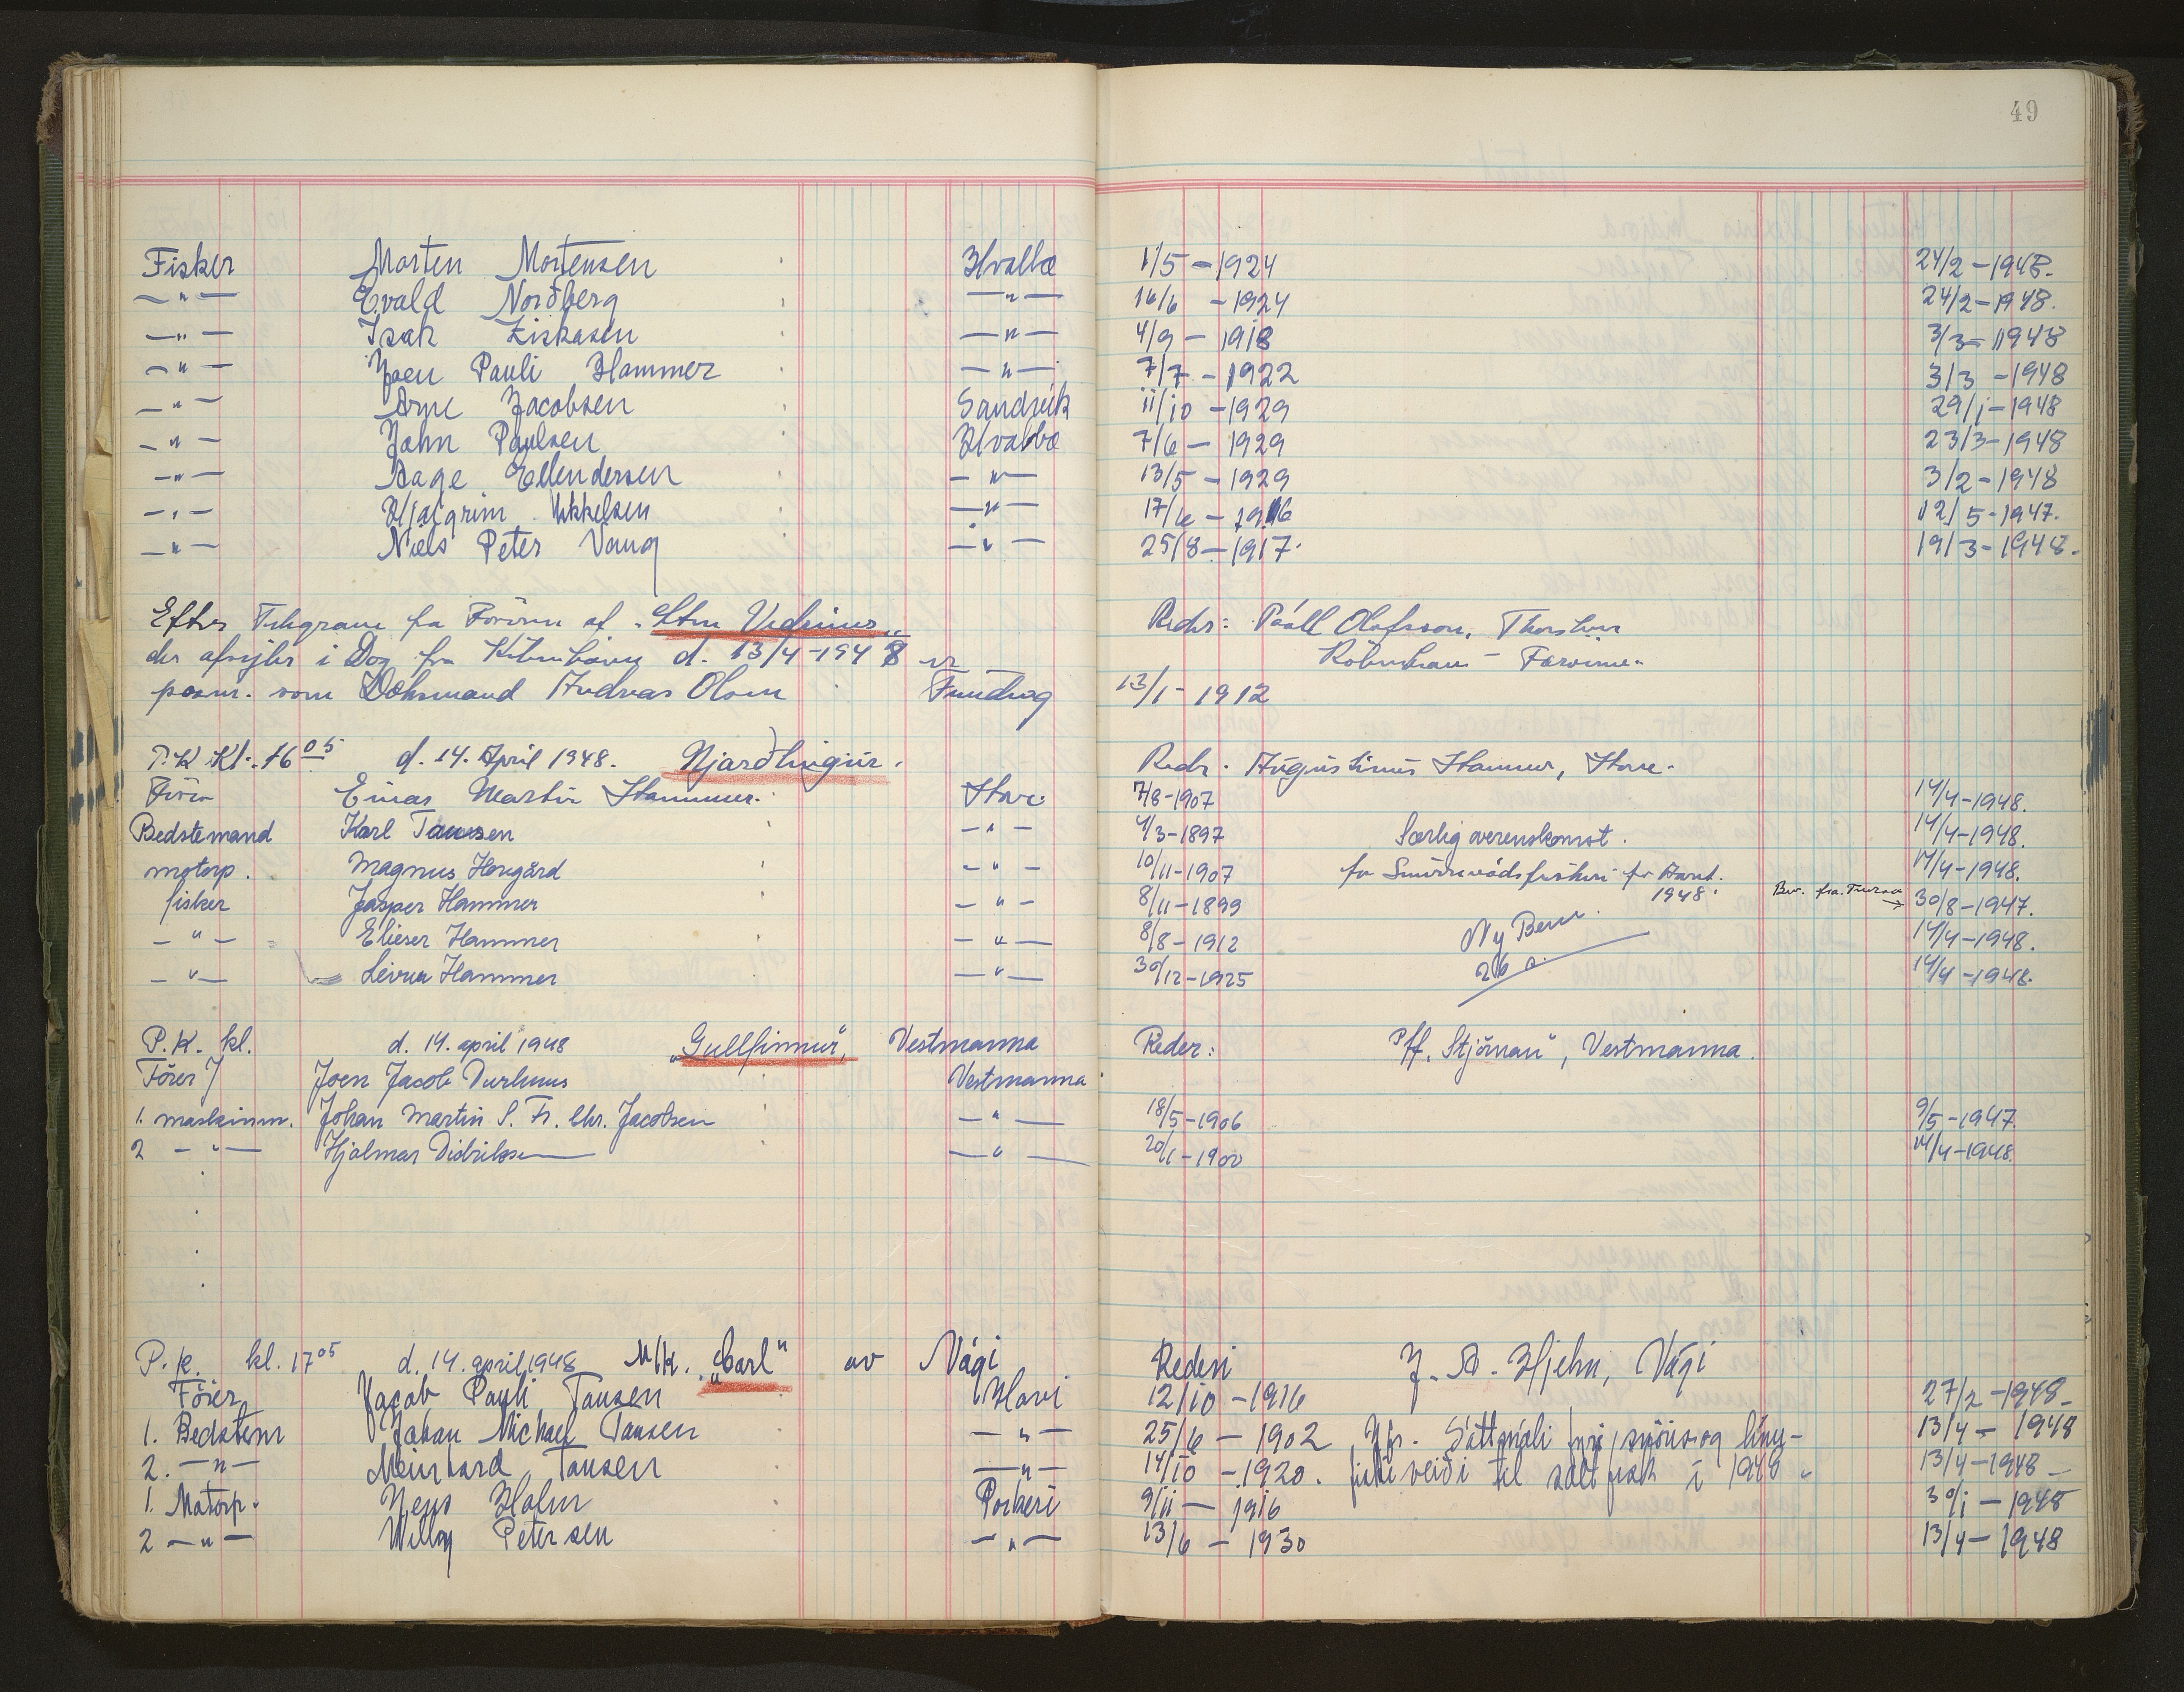 49
Fisker Morten Mortensen Hvalbø 1/5 - 1924 24/2 - 1948.
— " — Evald Norðberg — " — 16/6 - 1924 24/2 - 1948.
— " — Isak Ziskasen — " — 4/9 - 1918 3/3 - 1948
— " — Joen Pauli Hammer — " — 7/7 - 1922 3/3 - 1948
— " — Arne Jacobsen Sandvík 11/10 - 1929 29/1 - 1948
— " — John Paulsen Hvalbø 7/6 - 1929 23/3 - 1948
— " — Aage Ellendersen — " — 13/5 - 1929 3/2 - 1948
— " — Hjalgrim Mikkelsen — " — 17/6 - 1916 12/5 - 1947.
— " — Niels Peter Vang — " — 25/8 - 1917. 19/3 - 1948.
Efter Telegram fra Föreren af "Stm Vefuius" Reder: Páll Olafsson, Thorshavn
der afsejler i Dag fra København d. 13/4 - 1948 er København - Færøerne.
paam. som Dæksmand Andreas Olsen Funding 13/1 - 1912
P.K Kl. 16 05 d. 14. April 1948. Njarðlingur. Redr. Augustinus Hammer, Hove.
Förer Einar Martin Hammer. Hove. 7/8 - 1907 14/4 - 1948.
Bedstemand Karl Tausen — " — 4/3 - 1897 Særlig overenskomst. 14/4 - 1948.
motorp. Magnus Horgård — " — 10/11 - 1907 for Snurrevódsfiskeri for Aaret 14/4 - 1948.
fisker Jasper Hammer — " — 8/11 - 1899 1948. Bev. fra → 30/8 - 1947.
— " — Elieser Hammer — " — 8/8 - 1912 Ny Bem. 14/4 - 1948.
— " — Leivur Hammer — " — 30/12 - 1925 26 a. 14/4 - 1948.
P.K. kl. d. 14. april 1948 "Gullfinnur", Vestmanna Reder: P/f. Stjörnan", Vestmanna.
Förer Joen Jacob Durhuus Vestmanna
1. maskinm. Johan Martin S. Fr. Chr. Jacobsen — " — 18/5 - 1906 9/5 - 1947
2 — " — Hjalmar Didriksen — " — 20/1 - 1900 14/4 - 1948.
P.K. kl. 17 05 d. 14. april 1948 M/K. "Carl" av Vági Rederi J. A. Hjelm, Vági
Förer Jacob Pauli Tausen Hovi 12/10 - 1916 27/2 - 1948.
1. Bedstem Johan Michael Tausen — " — 25/6 - 1902 Sáttmáli fyri snöris og línu- 13/4 - 1948
2. — " — Meinhard Tausen — " — 14/10 - 1920. fiski veiði til salt fisk í 1948. 13/4 - 1948
1. Motorp. Jens Holm Porkeri 9/11 - 1916 30/1 - 1948
2 — " — Willy Petersen — " — 13/6 - 1930 13/4 - 1948